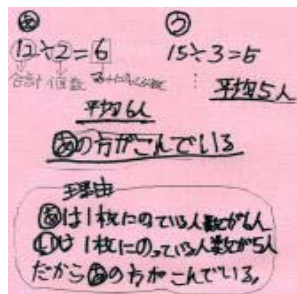 あ う
12÷2=6 15÷3=5
合計 個数
平均5人
平均6人
あの方がこんでいる
理由
あは1枚にのている人数が6人
いは1枚にのっている人数が5人
だからあの方がこんでいる。